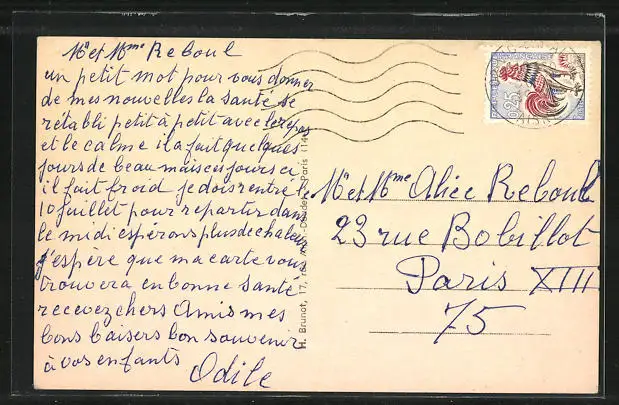 Mr et Mme Reboul
un petit mot pour vous donner
de mes nouvelles la santé se
rétabli petit à petit avec le repos
et le calme il a fait quelques
jours de beau mais ces jours ci
il fait froid je dois rentré le
10 juillet pour repartir dans
le midi espérons plus de chaleur
j'espère que ma carte vous
trouvera en bonne santé
recevez chers Amis mes
bons baisers bon souvenir
à vos enfants
Odile
H. Brunot, 17, Paris
Mr et Mme Alice Reboul
23 rue Bobillot
Paris XIII
75
0,25